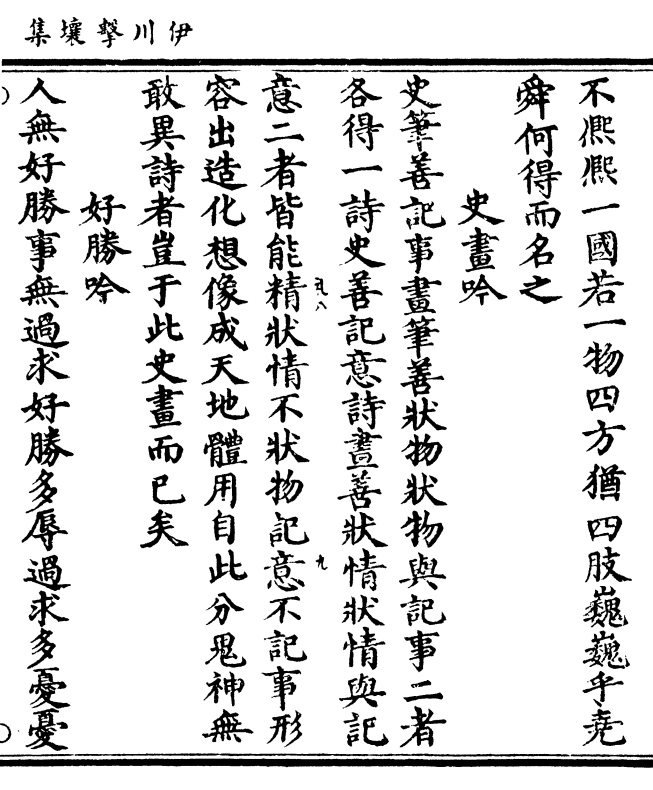 伊川擊壤集
不熈熈一國若一物四方猶四肢巍巍乎堯
舜何得而名之
史畫吟
史筆善記事畫筆善狀物狀物與記事二者
各得一詩史善記意詩畫善狀情狀情與記
九
意二者皆能精狀情不狀物記意不記事形
容出造化想像成天地體用自此分鬼神無
敢異詩者豈于此史畫而已矣
好勝吟
人無好勝事無過求好勝多辱過求多憂憂